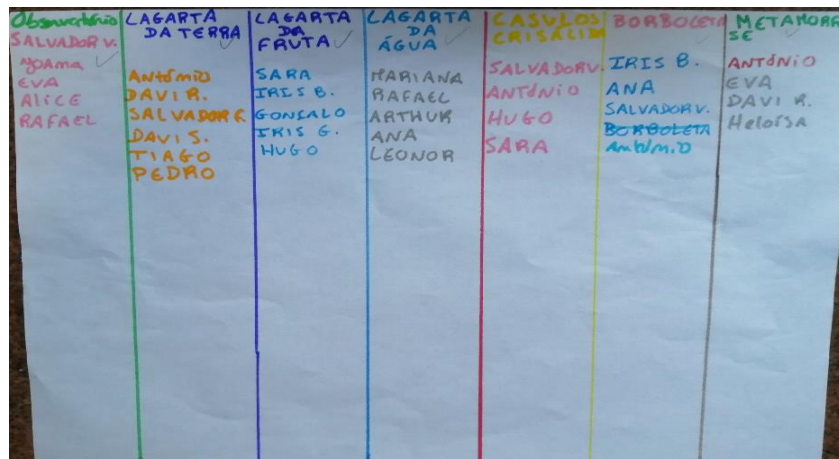 Observatório
SALVADOR V.
Yoama
EVA
Alice
RAFAEL
LAGARTA
DA TERRA
António
DAVI R.
SALVADOR F.
DAVI S.
TIAGO
PEDRO
LAGARTA
DA
FRUTA
SARA
IRIS B.
GONSALO
IRIS G.
HUGO
LAGARTA
DA
ÁGUA
MARIANA
RAFAEL
ARTHUR
ANA
LEONOR
CASULOS
CRISALIDA
SALVADOR V.
ANTÓNIO
HUGO
SARA
BORBOLETA
IRIS B.
ANA
SALVADOR V.
BORBOLETA
António
METAMORFO
SE
ANTÓNIO
EVA
DAVI R.
Heloísa